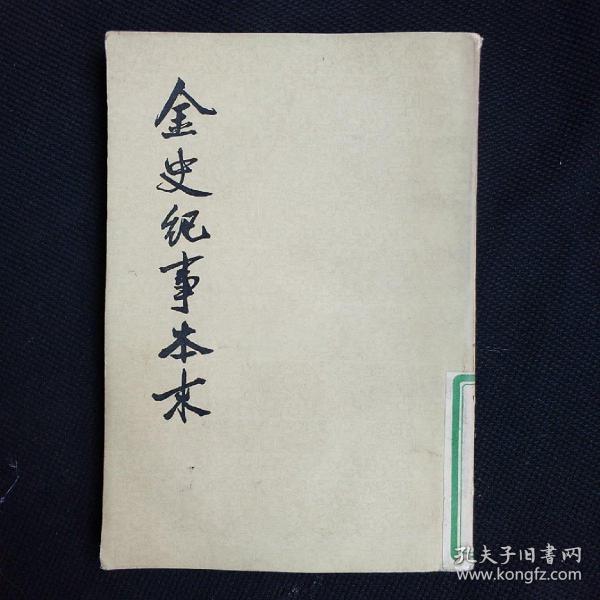 金史紀事本末
孔夫子旧書网
www.kongfz.com